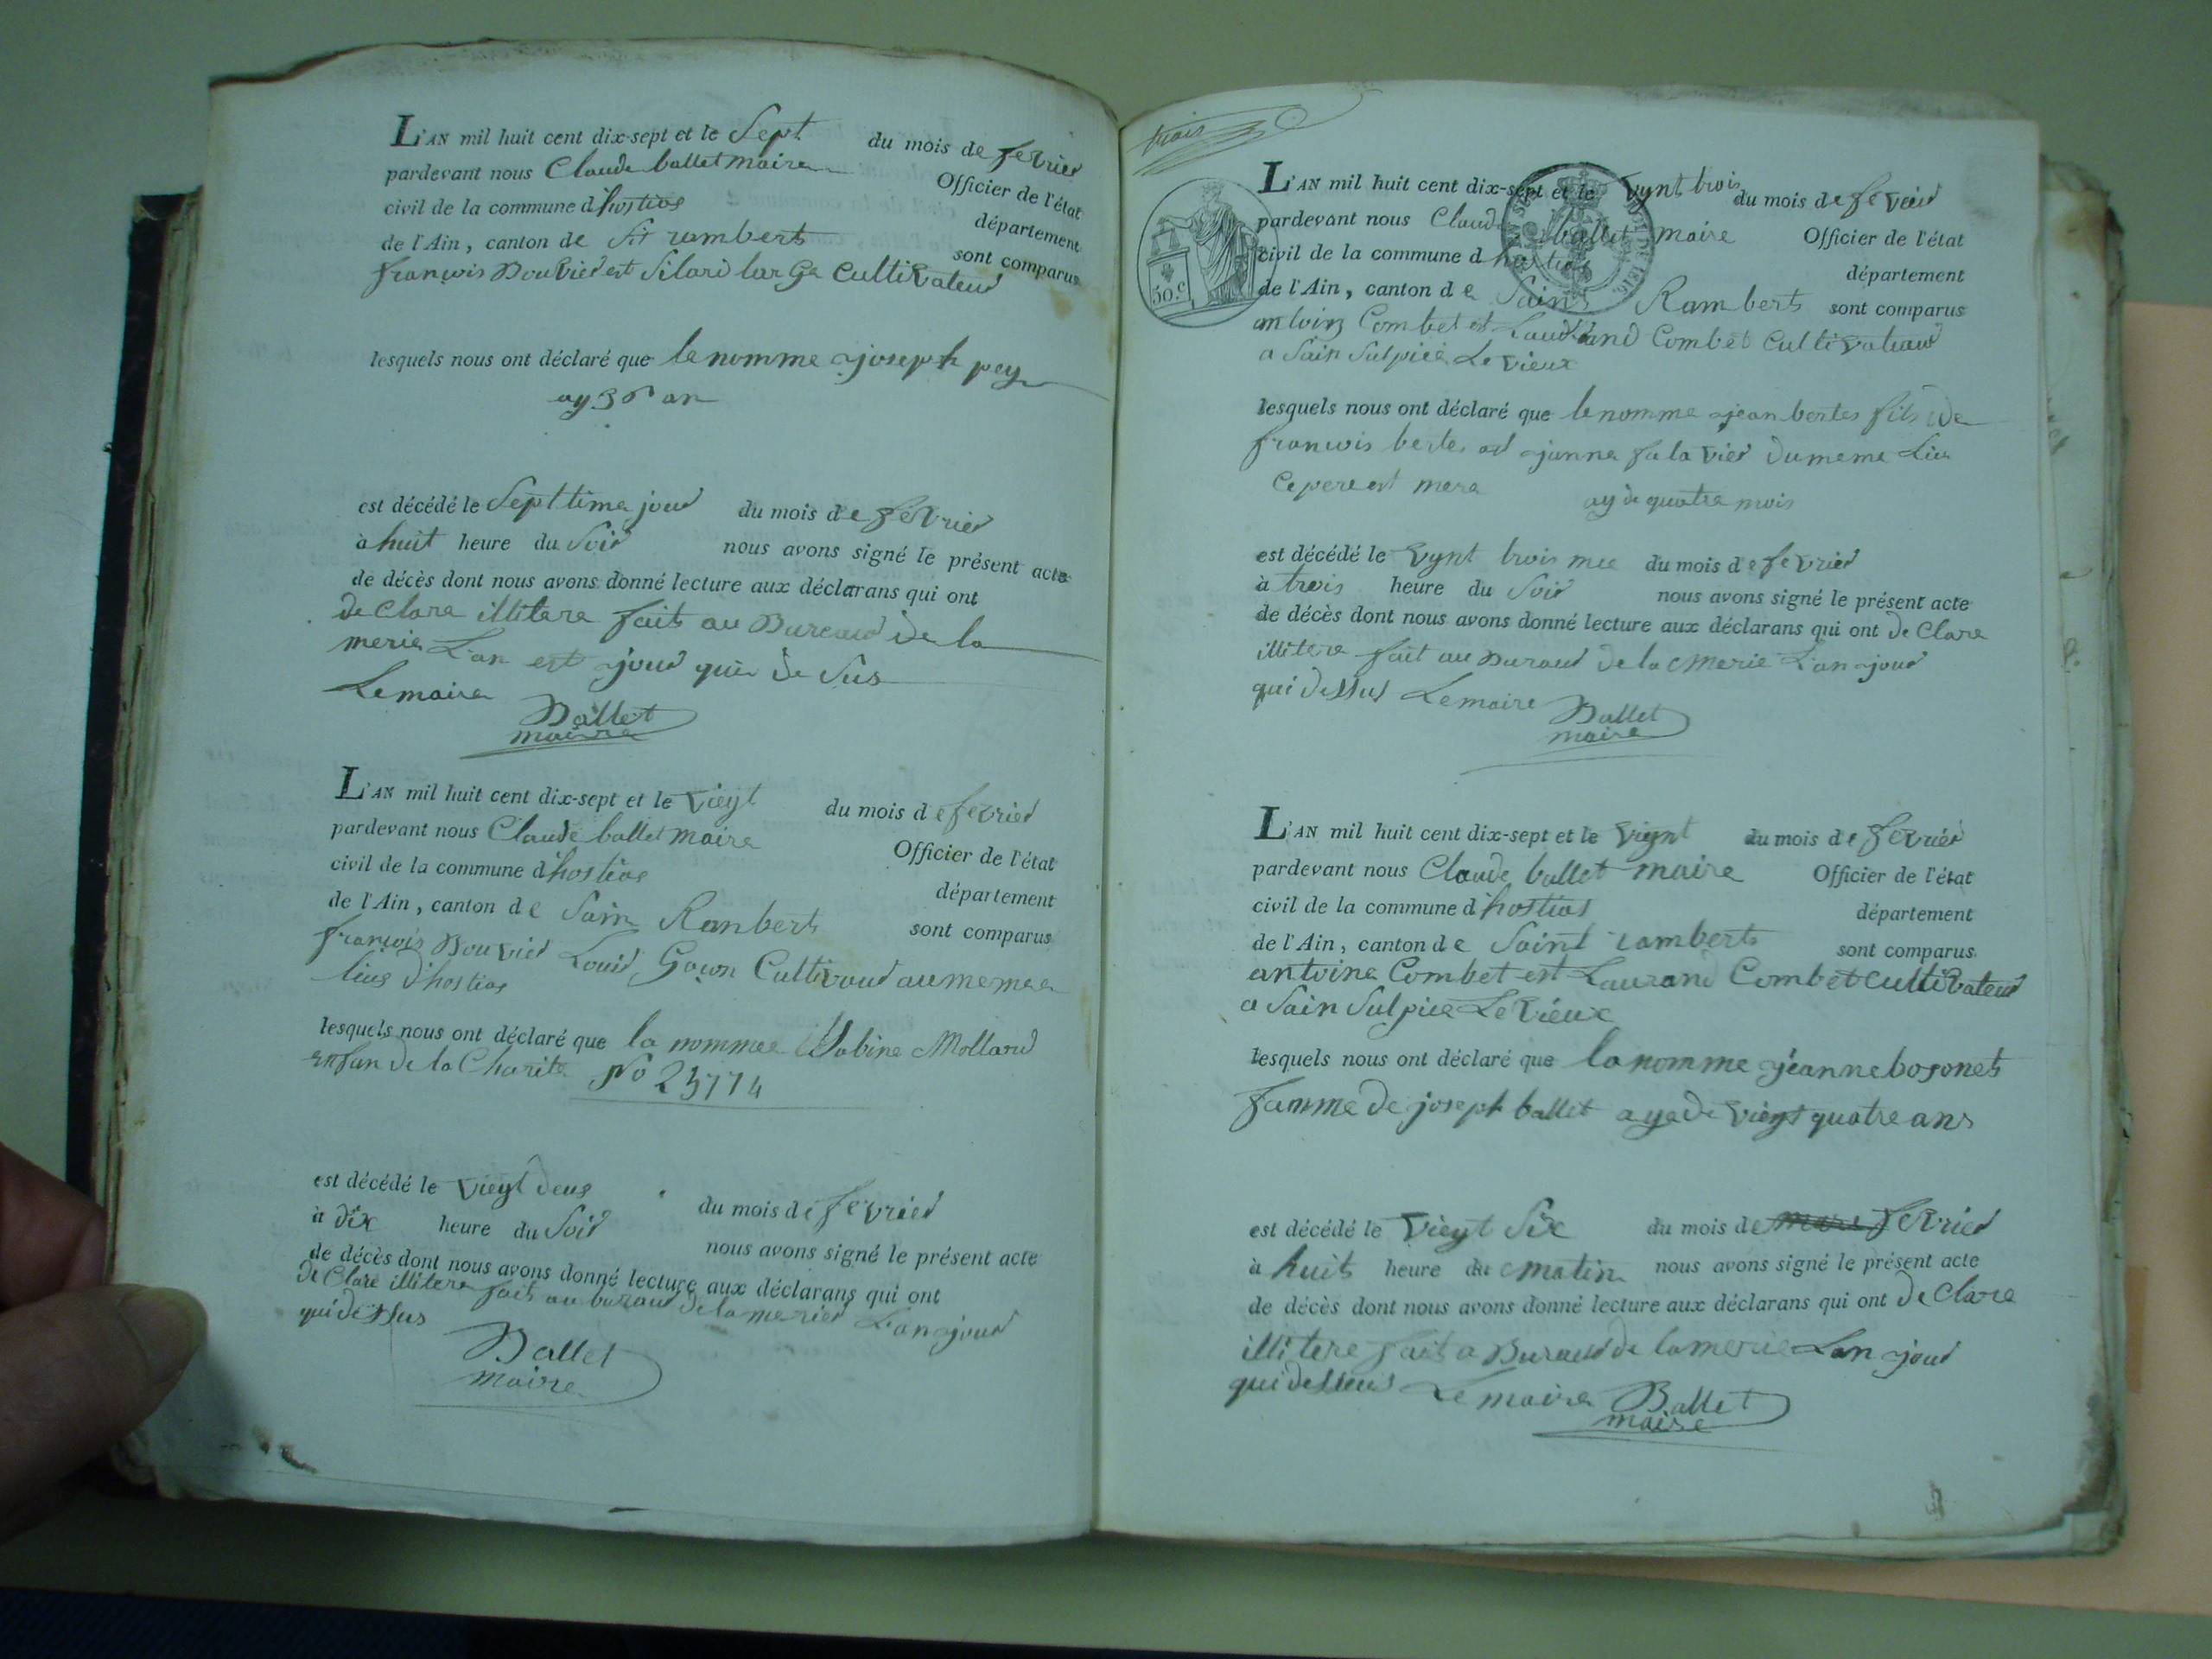 L'AN mil huit cent dix-sept et le Sept du mois de fevrier
pardevant nous Claude ballet maire Officier de l'état
civil de la commune d'hostias département
de l'Ain, canton de St rambert sont comparus
françois Bouvier est Silari large Cultivateur
lesquels nous ont déclaré que le nomme joseph pey
ay 36 an
est décédé le Septtime jour du mois de fevrier
à huit heure du Soir nous avons signé le présent acte
de décès dont nous avons donné lecture aux déclarans qui ont
de Clare illitere fait au Bureau de la
merie L'an est jour qui de Sus
Le maire
Ballet
maire
L'AN mil huit cent dix-sept et le vieyt du mois de fevrier
pardevant nous Claude ballet maire Officier de l'état
civil de la commune d'hostias département
de l'Ain, canton de Sain Ranbert sont comparus
françois Bouvier Louis Goçon Cultivour au meme
lieu d'hostias
lesquels nous ont déclaré que la nommee Sabine Mollard
enfan de la Charite No 25774
est décédé le vieyt deus du mois de fevrier
à dix heure du Soir nous avons signé le présent acte
de décès dont nous avons donné lecture aux déclarans qui ont
de Clare illitere fait au buraud de la merier L'an jour
qui dessus
Ballet
maire
trois
L'AN mil huit cent dix-sept et le vynt trois du mois de fevrier
pardevant nous Claude ballet maire Officier de l'état
civil de la commune d hostias département
de l'Ain, canton de Sain Rambert sont comparus
50.c
antoine Combet et Laurand Combet Cultivateur
a Sain Sulpice Le vieux
lesquels nous ont déclaré que le nomme jean bertes fils de
francois bertes est janne fala vier du meme Lieu
Ce pere est mere ay de quatre mois
est décédé le vynt trois mee du mois de fevrier
à trois heure du Soir nous avons signé le présent acte
de décès dont nous avons donné lecture aux déclarans qui ont de Clare
illitere fait au Buraud de la Merie L'an jour
qui dessus Le maire Ballet
maire
L'AN mil huit cent dix-sept et le vieynt du mois de fevrier
pardevant nous Claude ballet maire Officier de l'état
civil de la commune d hostias département
de l'Ain, canton de Saint rambert sont comparus
antoine Combet est Laurand Combet cultivateur
a Sain Sulpice Le vieux
lesquels nous ont déclaré que la nomme jeanne bozonet
famme de joseph ballet ayade vieyt quatre ans
est décédé le vieyt Six du mois de mars fevrier
à huit heure du matin nous avons signé le présent acte
de décès dont nous avons donné lecture aux déclarans qui ont de Clare
illitere fait a Buraud de la merie L'an jour
qui dessus Le maire Ballet
maire